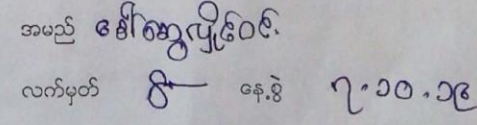 အမည် ဒေါ်ဆွေလှိုင်ဝင်း
လက်မှတ် နေ့စွဲ ၇.၁၀.၁၉